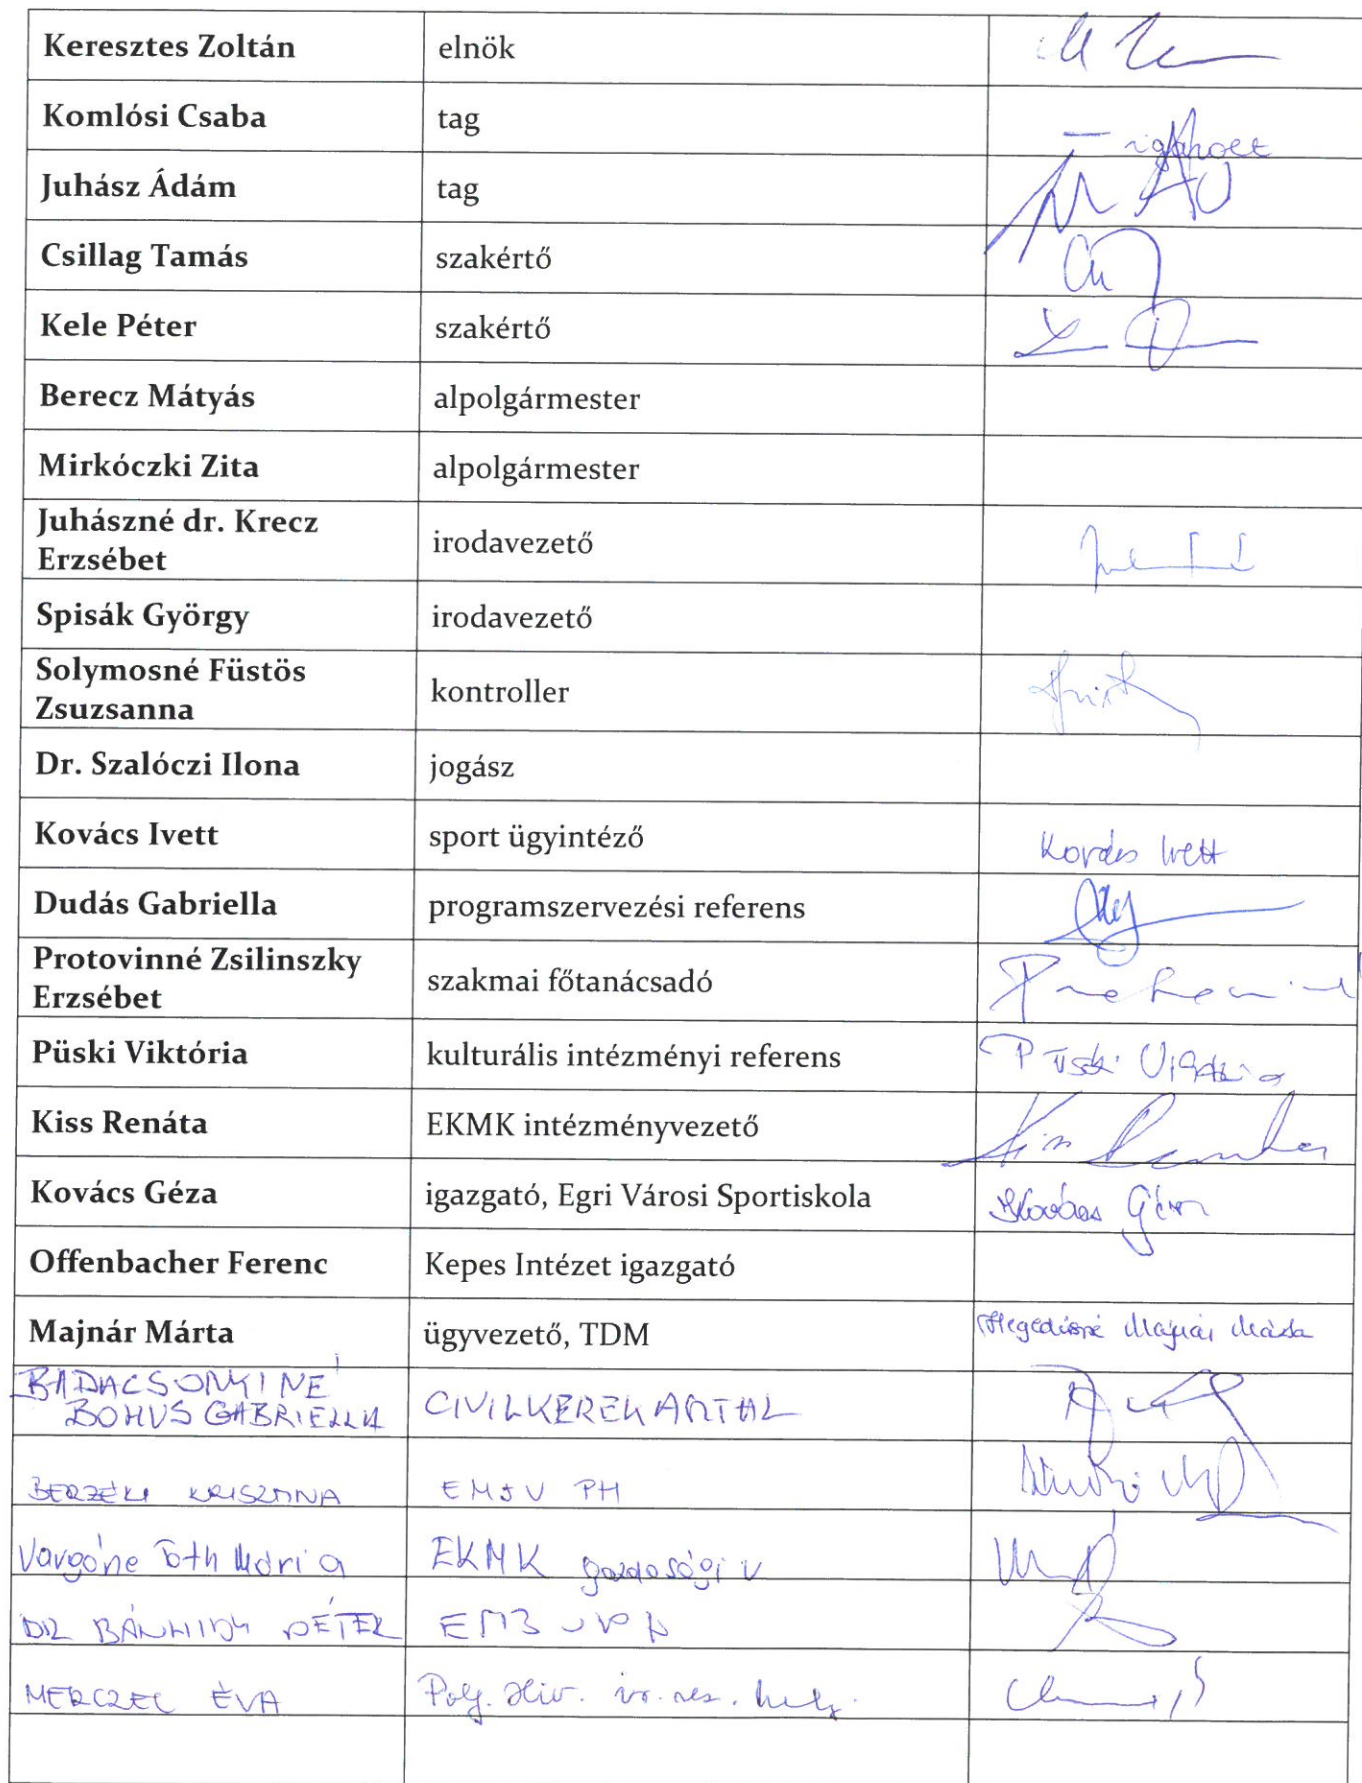 Keresztes Zoltán elnök
Komlósi Csaba tag
Juhász Ádám tag
Csillag Tamás szakértő
Kele Péter szakértő
Berecz Mátyás alpolgármester
Mirkóczki Zita alpolgármester
Juhászné dr. Krecz
Erzsébet irodavezető
Spisák György irodavezető
Solymosné Füstös
Zsuzsanna kontroller
Dr. Szalóczi Ilona jogász
Kovács Ivett sport ügyintéző Kovács Ivett
Dudás Gabriella programszervezési referens
Protovinné Zsilinszky
Erzsébet szakmai főtanácsadó
Püski Viktória kulturális intézményi referens Püski Viktória
Kiss Renáta EKMK intézményvezető Kiss Renáta
Kovács Géza igazgató, Egri Városi Sportiskola Kovács Géza
Offenbacher Ferenc Kepes Intézet igazgató
Majnár Márta ügyvezető, TDM Hegedűsné Majnár Márta
BADACSONYINÉ
BOHUS GABRIELLA CIVILKEREKASZTAL
BERZÉKI KRISZTINA EMJV PH
Vargáné Tóth Mária EKMK gazdasági v
DR BÁNHIDY PÉTER
MERCZEL ÉVA Polg. Hiv.